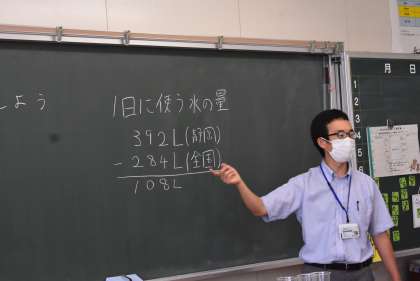 しよう
1日に使う水の量
392L(静岡)
-284L(全国)
108L
月 日
1
2
3
4
5
6